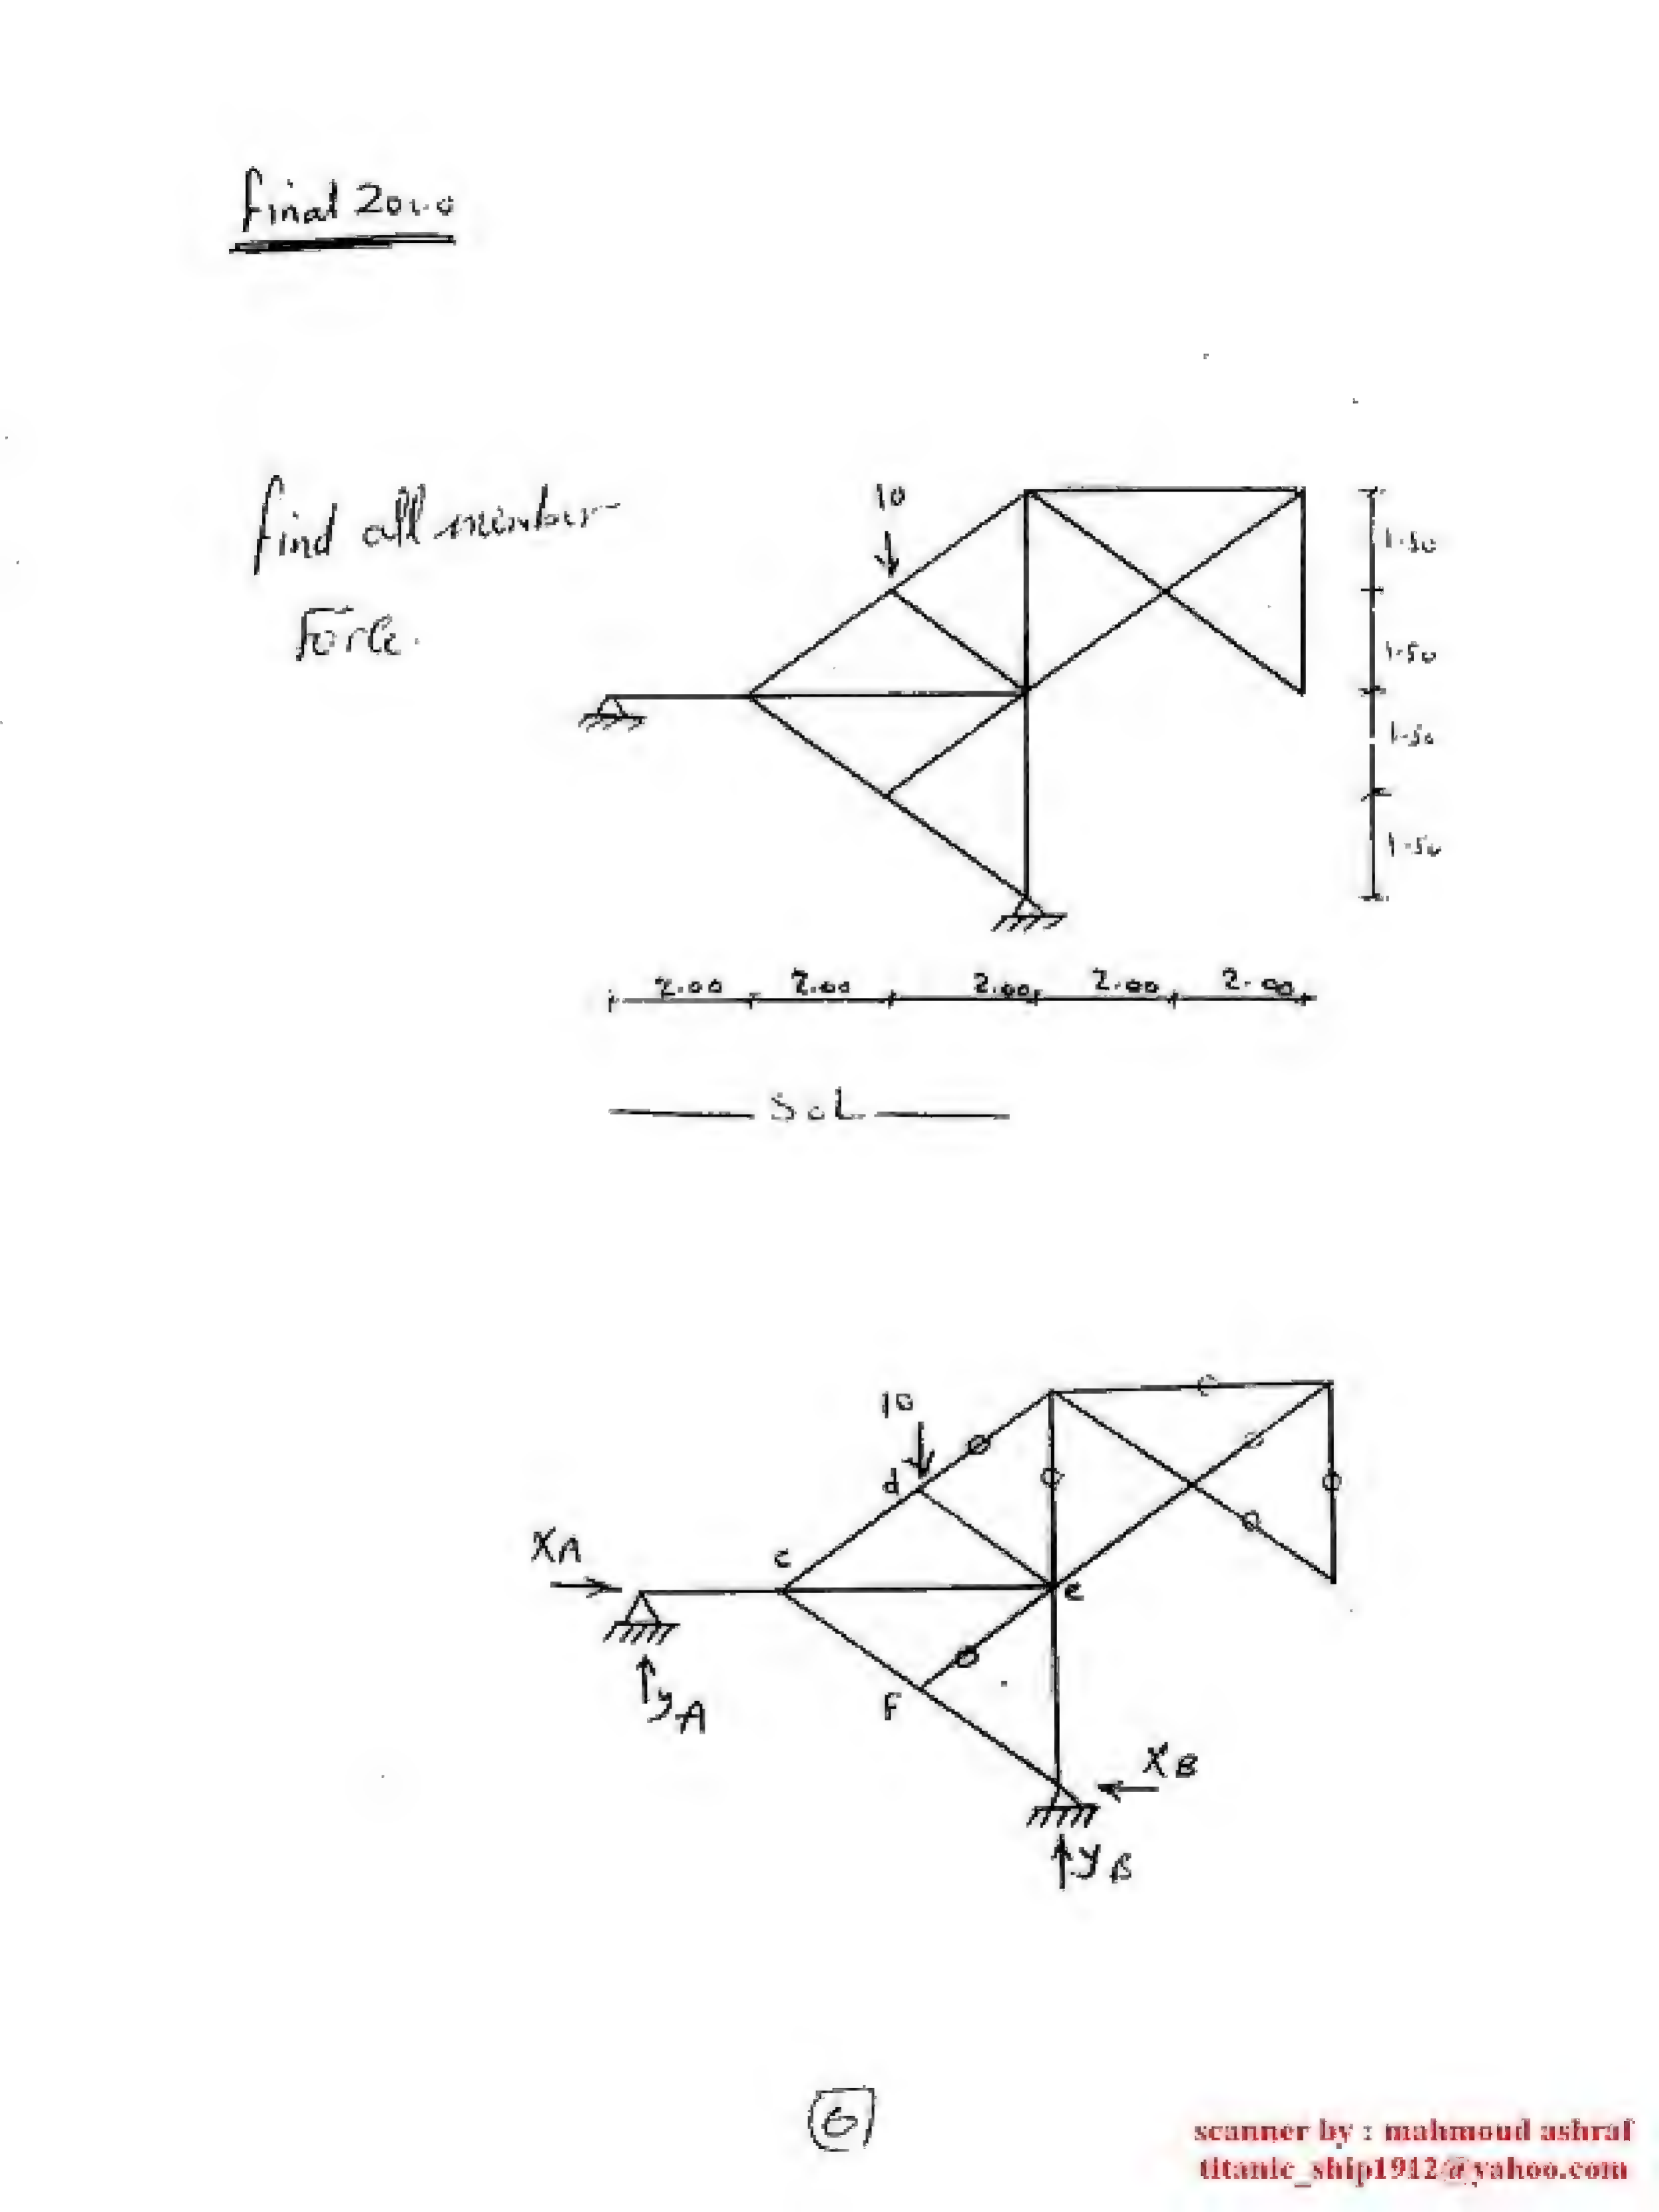 final 2000
find all member
Force.
10
1.50
1.50
1.50
1.50
2.00 2.00 2.00 2.00 2.00
SoL
10
d
c
XA
e
yA
F
XB
yB
6
scanner by : mahmoud ashraf
titanic_ship1912@yahoo.com